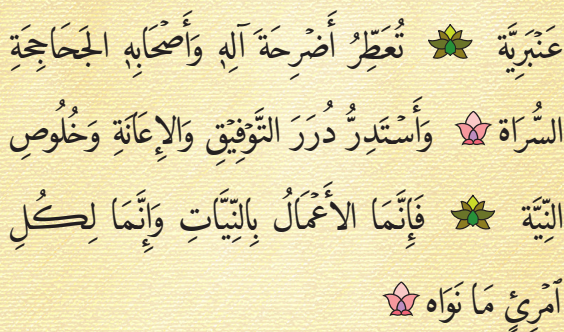 عَنْبَرِيَّة تُعَطِّرُ أَضْرِحَةَ آلِهِ وَأَصْحَابِهِ الجَحَاجِحَةِ
السُّرَاة وَأَسْتَدِرُّ دُرَرَ التَّوْفِيْقِ وَالإِعَانَةِ وَخُلُوصِ
النِّيَّة فَإِنَّمَا الأَعْمَالُ بِالنِّيَّاتِ وَإِنَّمَا لِكُلِ
ٱمْرِئٍ مَا نَوَاه